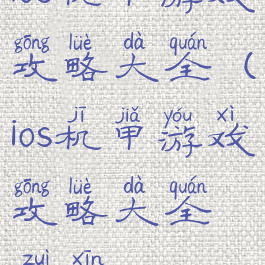 gōng lüè dà quán
攻略大全（
jī jiǎ yóu xì
ios机甲游戏
gōng lüè dà quán
攻略大全
zuì xīn